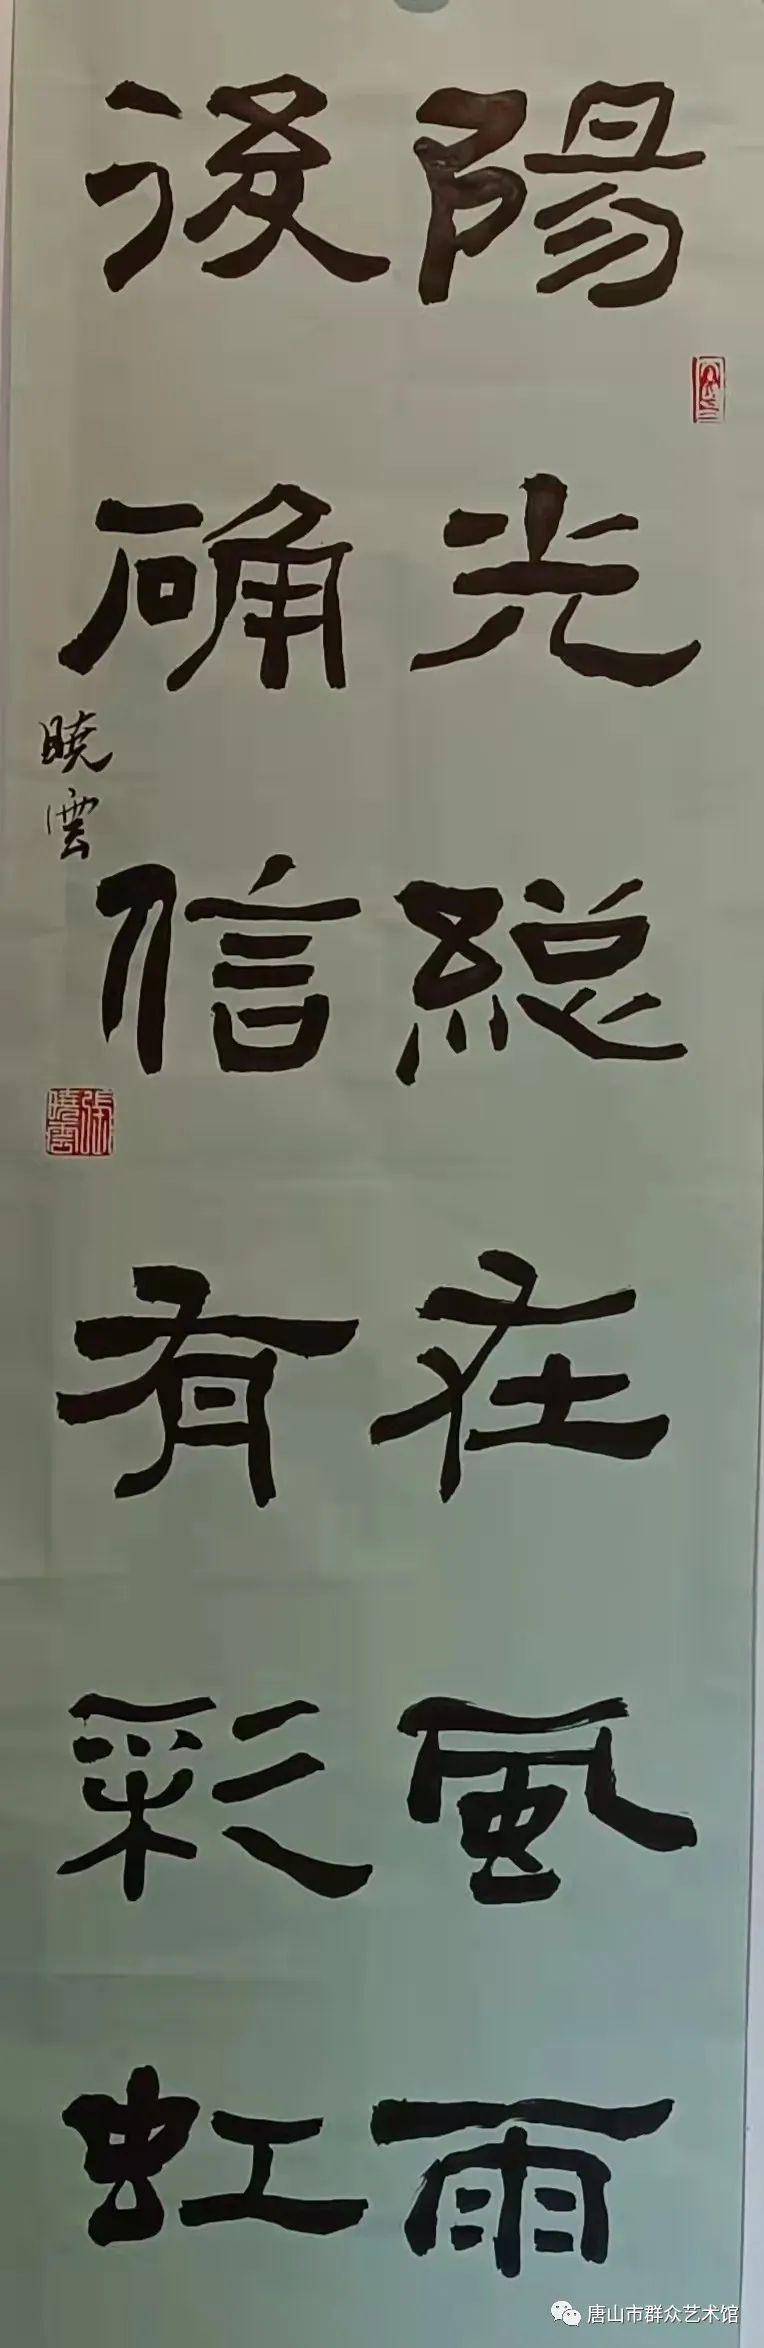 陽光總在風雨
後確信有彩虹
曉雲
張曉雲
唐山市群众艺术馆